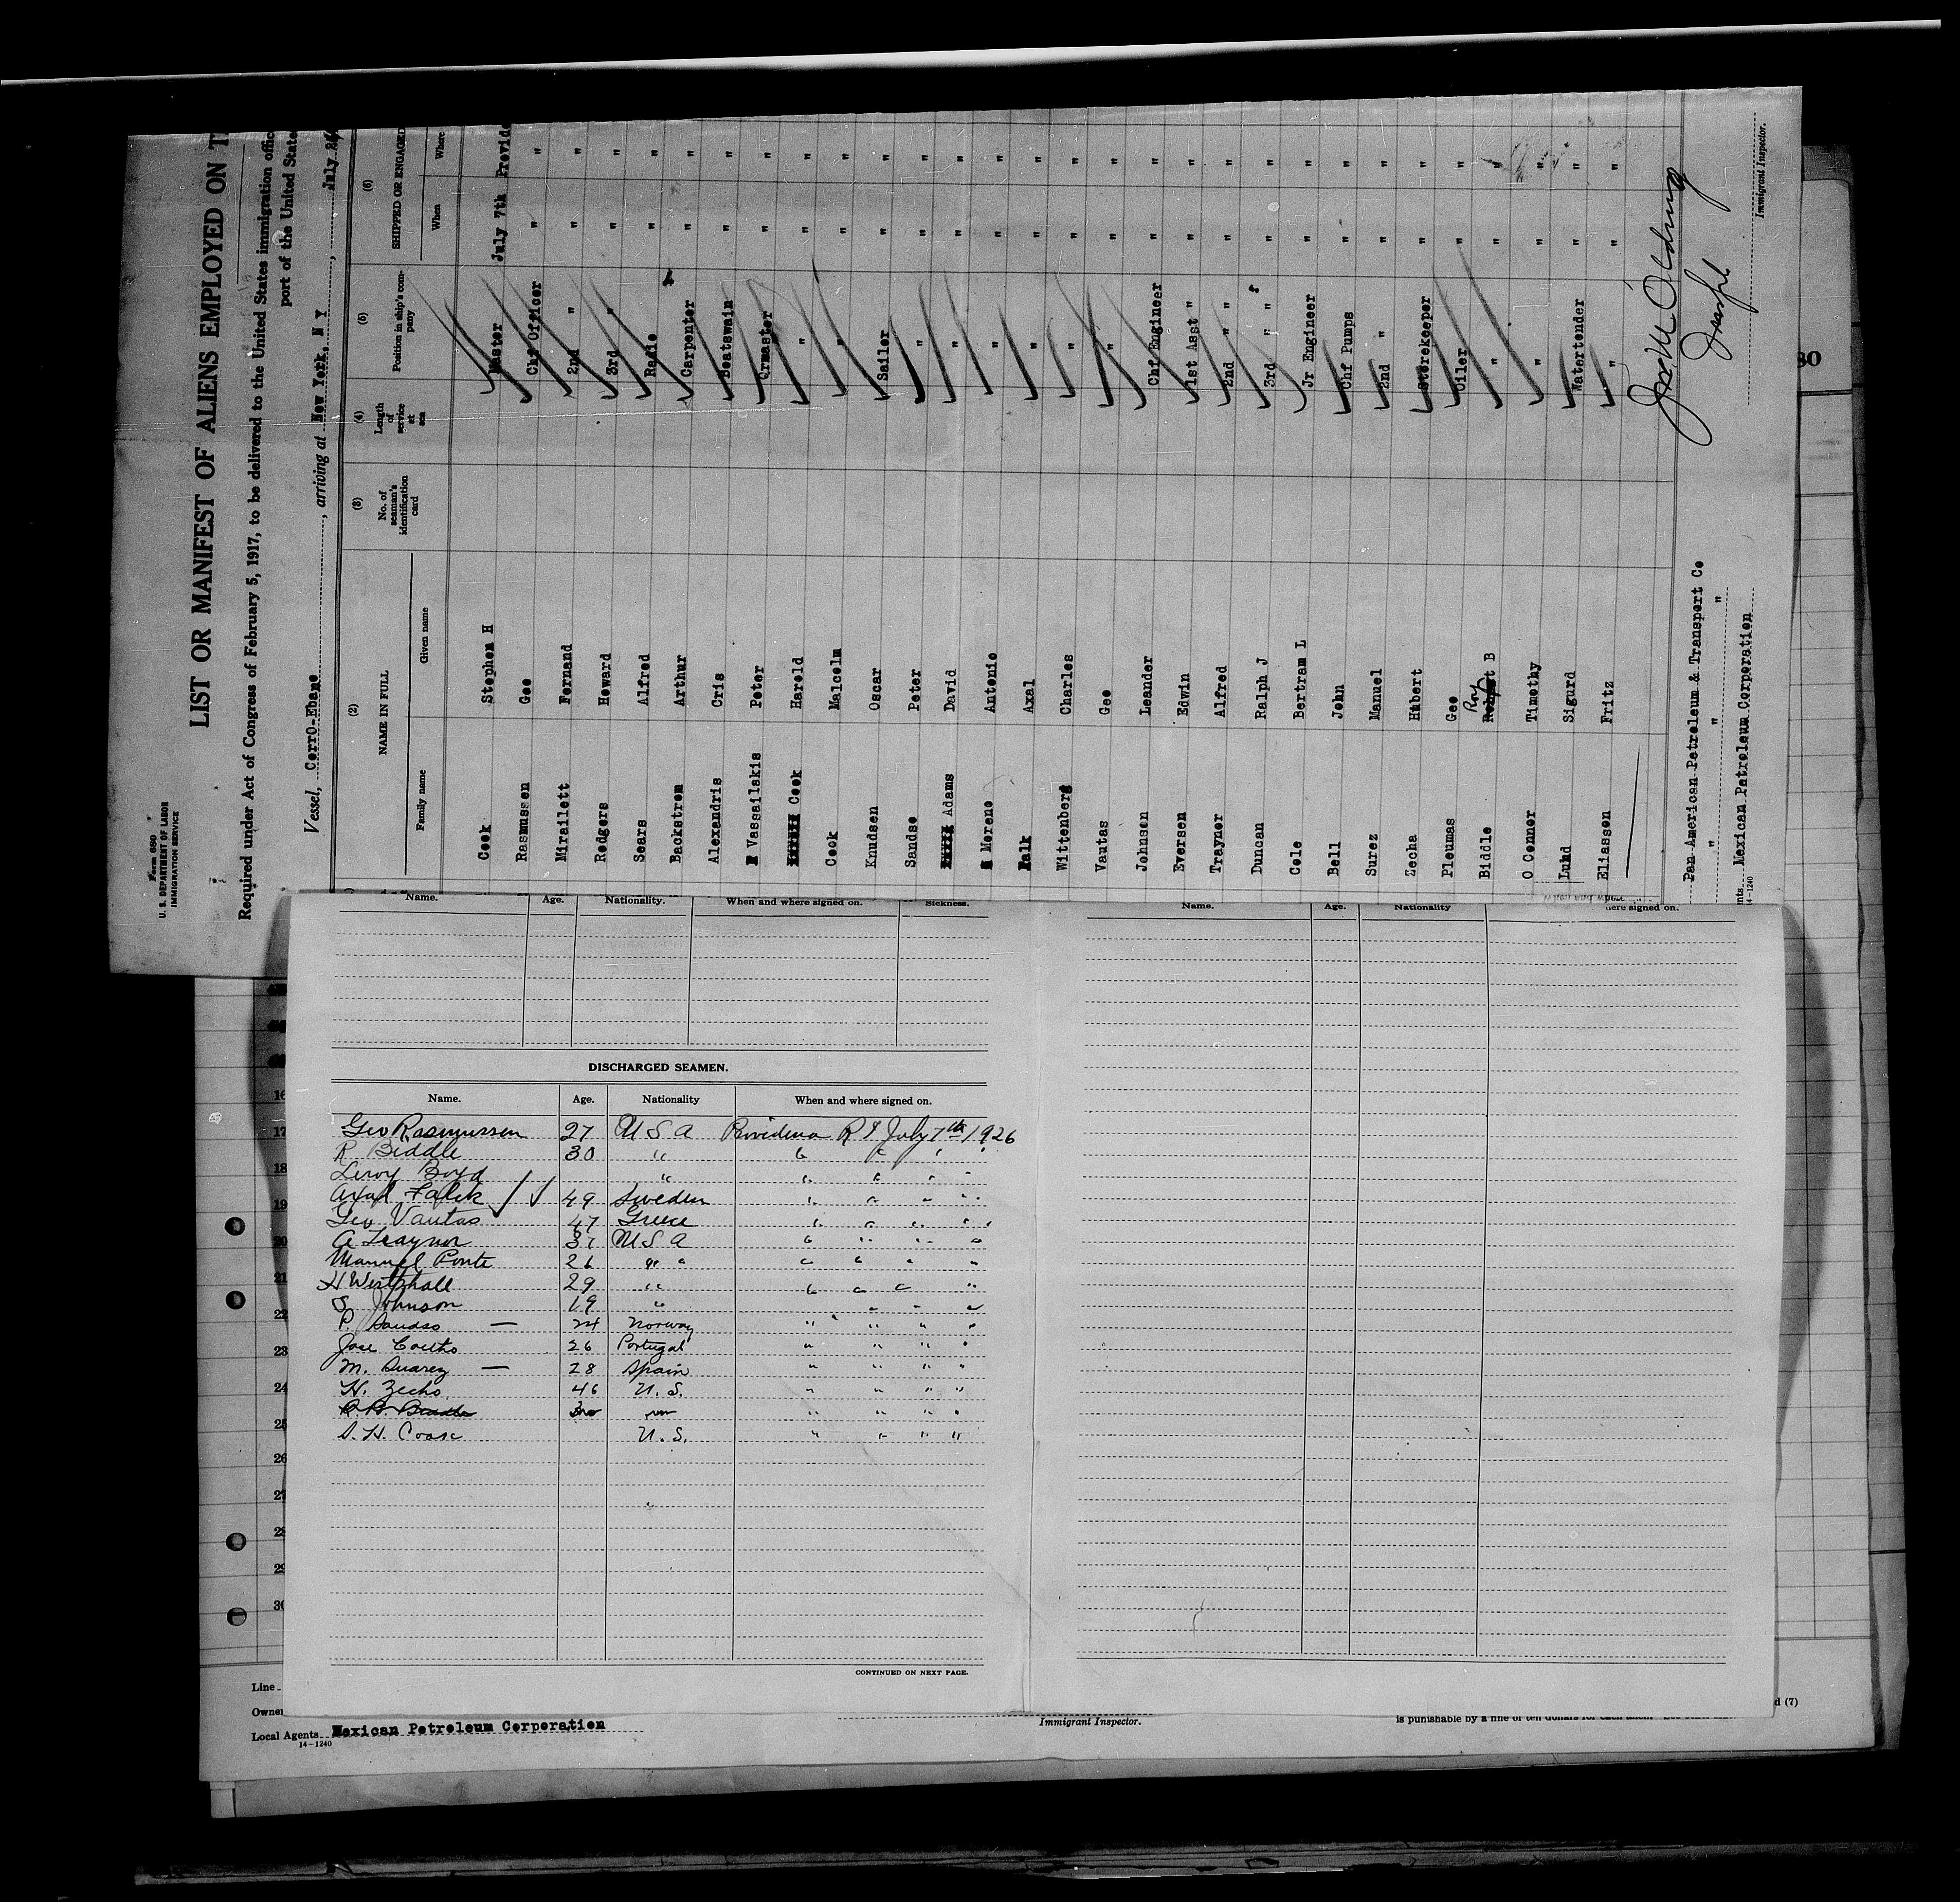 Form 680
U. S. DEPARTMENT OF LABOR
IMMIGRATION SERVICE
LIST OR MANIFEST OF ALIENS EMPLOYED ON
Required under Act of Congress of February 5, 1917, to be delivered to the United States immigration
port of the United State
Vessel, CerrO-Ebano, arriving at New York, N Y, July
(2) (3) (4) (5) (6)
NAME IN FULL No. of seaman's identification card Length of service at sea Position in ship's company SHIPPED OR ENGAGED
Family name Given name When Where
Cook Stephen H Master July 7th Provide
Rasmussen Geo Chf Officer " "
Mirailett Fernand 2nd " " "
Rodgers Howard 3rd " " "
Sears Alfred Radio " "
Backstrom Arthur Carpenter " "
Alexandris Cris Boatswain " "
Vassailakis Peter Qrmaster " "
Cook Harold " " "
Cock Malcolm " " "
Knudsen Oscar Sailor " "
Sandso Peter " " "
Adams David " " "
Moreno Antonio " " "
Falk Axal " " "
Wittenberg Charles " " "
Vautas Geo " " "
Johnson Leander Chf Engineer " "
Eversen Edwin 1st Asst " " "
Traynor Alfred 2nd " " " "
Duncan Ralph J 3rd " " " "
Cole Bertram L Jr Engineer " "
Bell John Chf Pumps " "
Surez Manuel 2nd " " "
Zecha Hubert Storekeeper " "
Pleumas Geo Oiler " "
Biddle Roy B " " "
O Connor Timothy " " "
Lund Sigurd Watertender " "
Eliassen Fritz " " "
Pan American Petroleum & Transport Co
" " "
Mexican Petroleum Corporation
14-1240
Immigrant Inspector.
Name. Age. Nationality. When and where signed on. Sickness.
Name. Age. Nationality here signed on.
DISCHARGED SEAMEN.
Name. Age. Nationality When and where signed on.
Geo Rasmussen 27 U S A Providence R I July 7th 1926
R Biddle 30 " " " " "
Leroy Boyd " " " " "
Axal Falck 49 Sweden " " " "
Geo Vautas 47 Greece " " " "
A Traynor 37 U S A " " " "
Manuel Ponte 26 " " " " " "
H Westphall 29 " " " " "
S Johnson 19 " " " "
P. Sandso — 24 Norway " " " "
Jose Coelho 26 Portugal " " " "
M. Suarez — 28 Spain " " " "
H. Zecho 46 U. S. " " " "
" " " "
S. H. Cook U. S. " " " "
CONTINUED ON NEXT PAGE.
16
17
18
19
20
21
22
23
24
25
26
27
28
29
30
80
Line
Owne
Local Agents Mexican Petroleum Corporation
14-1240
Immigrant Inspector.
d (7)
is punishable by a fine of ten dollars for each alien.